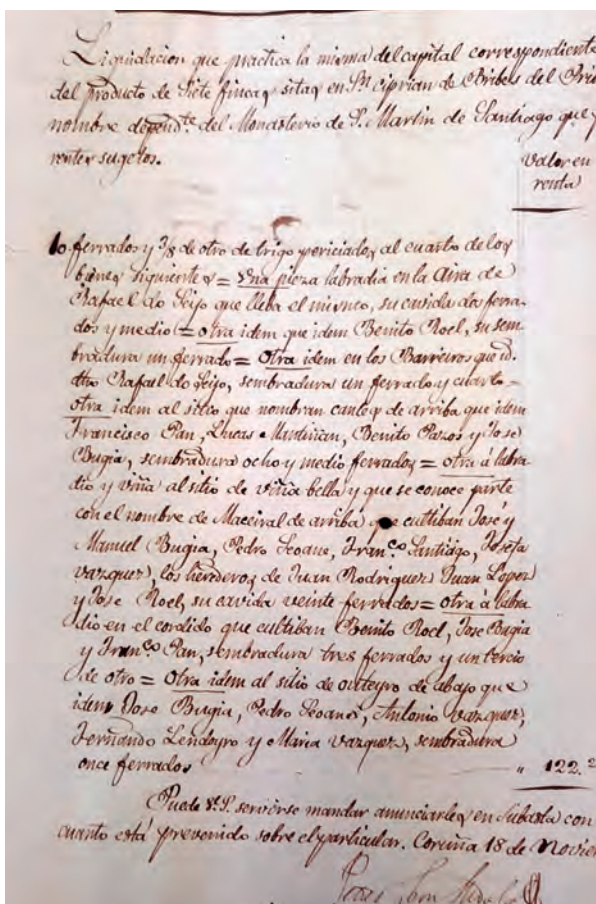 Liquidacion que practica la misma del capital correspondiente
del producto de Siete fincas sitas en Sn. Ciprian de Bribes del Prio
nombre depend.te del Monasterio de S. Martin de Santiago que
rentes sugetos.
Valor en
renta
10 ferrados y 3/8 de otro de trigo periciados al cuarto de los
bienes siguientes = Una pieza labradia en la Aira de
Rafael do Seijo que lleba el mismo, su cavida dos ferra-
dos y medio = otra idem que idem Benito Roel, su sem
bradura un ferrado = Otra idem en los Barreiros que id.
dho Rafael do Seijo, sembradura un ferrado y cuarto =
otra idem al sitio que nombran de arriba que idem
Francisco Pan, Lucas Mantiñan, Benito Pazos y Jose
Bugia, sembradura ocho y medio ferrados = otra á labra-
dio y viña al sitio de viña bella y que se conoce parte
con el nombre de de arriba que cultiban José y
Manuel Bugia, Pedro Seoane, Fran.co Santiago, Josefa
Vazquez, los herederos de Juan Rodriguez Juan Lopez
y Jose Roel, su cavida veinte ferrados = otra á labra-
dio en el cordido que cultiban Benito Roel, Jose Bugia
y Fran.co Pan, sembradura tres ferrados y un tercio
de otro = Otra idem al sitio de outeyro de abajo que
idem Jose Bugia, Pedro Seoane, Antonio Vazquez,
Fernando Lendoyro y Maria Vazquez, sembradura
once ferrados " 122.2
Puede V.S. servirse mandar anunciarles en Subasta con
cuanto está prevenido sobre el particular. Coruña 18 de Novie